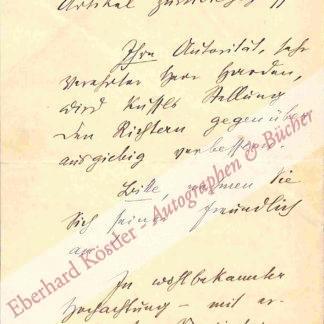 Artikel
Ihre Autorität, sehr
verehrter Herr Harden,
wird Stellung
den Richtern gegenüber
ausgiebig verbessern.
Bitte, nehmen Sie
Sich seiner freundlich
an.
In wohlbekannter
Hochachtung – mit er-
Eberhard Köstler - Autographen & Bücher